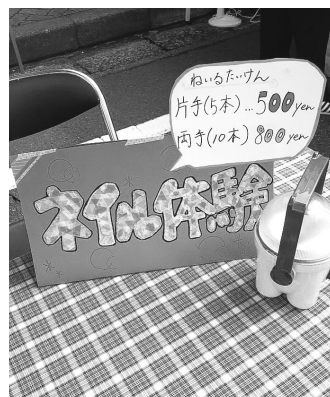 ねいるたいけん
片手(5本)...500yen
両手(10本)800yen
ネイル体験